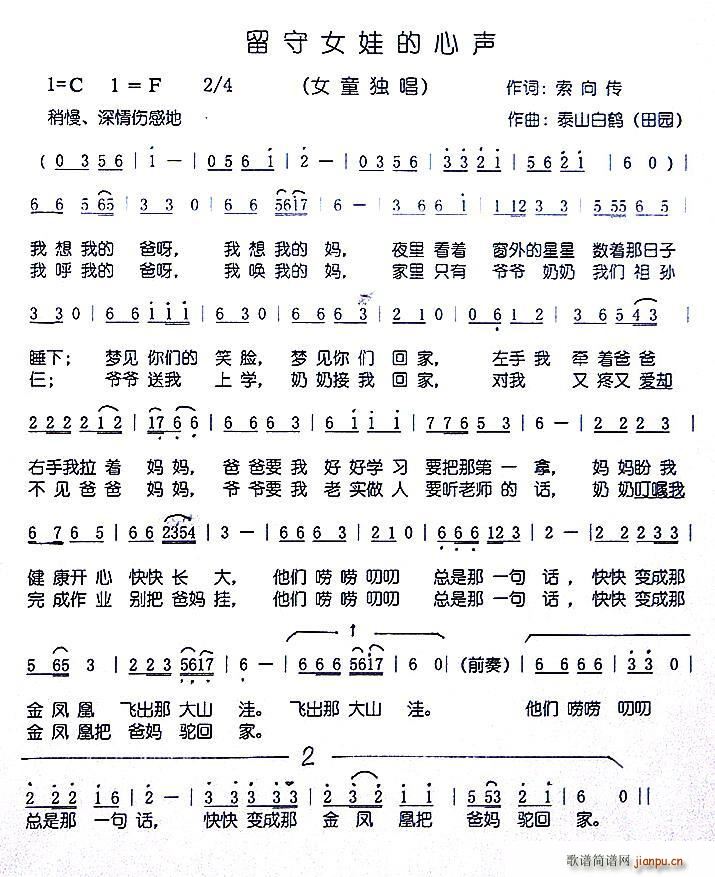 留守女娃的心声
1=C 1=F 2/4 (女童独唱) 作词：索向传
稍慢、深情伤感地 作曲：泰山白鹤（田园）
(0 356 | 1 - | 056 1 | 2 - | 0356 | 3321 | 5621 | 60) |
66 565 | 33 0 | 66 5617 | 6 - | 3 66 1 | 1 123 3 | 5 55 65 |
我想我的 爸呀， 我想我的 妈， 夜里 看着 窗外的星星 数着那日子
我呼我的 爸呀， 我唤我的 妈， 家里 只有 爷爷 奶奶 我们 祖孙
330 | 66 111 | 66 0 | 6663 | 210 | 0612 | 365 43 |
睡下； 梦见 你们的 笑脸， 梦见你们 回家， 左手我 牵着爸爸
仨； 爷爷 送我 上学， 奶奶接我 回家， 对我 又疼又 爱却
222212 | 1766 | 6663 | 6111 | 77653 | 6 - | 2223 |
右手我拉着 妈妈， 爸爸要我 好好学习 要把那第一拿， 妈妈盼我
不见爸爸 妈妈， 爷爷要我 老实做人 要听老师的话， 奶奶叮嘱我
6765 | 662354 | 3 - | 6663 | 210 | 666123 | 2 - | 22233 |
健康开心 快快长大， 他们唠唠叨叨 总是那一句话， 快快变成那
完成作业 别把爸妈挂， 他们唠唠叨叨 总是那一句话， 快快变成那
1
5 65 3 | 2235617 | 6 - | 6665617 | 60 | (前奏) | 6666 | 330 |
金凤凰 飞出那大山洼。 飞出那大山洼。 他们唠唠叨叨
金凤凰把 爸妈驼回家。
2
22216 | 2 - | 33333 | 3221 1 | 55321 | 60 ||
总是那一句话， 快快变成那 金凤凰把 爸妈驼回家。
歌谱简谱网
jianpu.cn